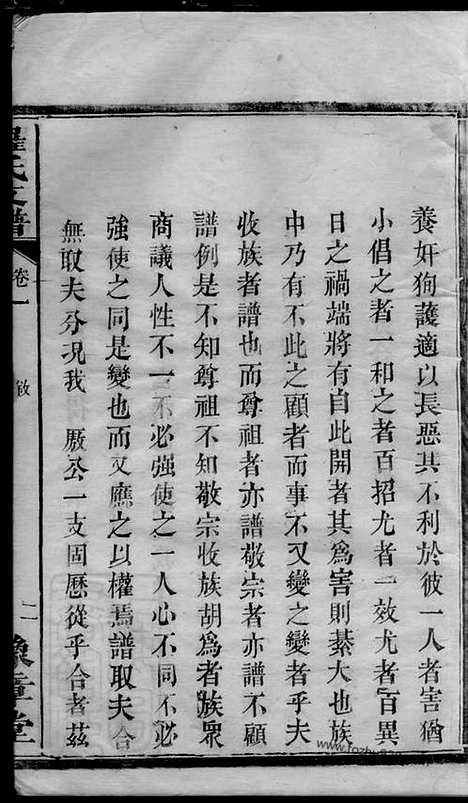 養奸狥護適以長惡其不利於彼一人者害猶
小倡之者一和之者百招尤者一效尤者百異
日之禍端將有自此開者其爲害則綦大也族
中乃有不此之顧者而事不又變之變者乎夫
收族者譜也而尊祖者亦譜敬宗者亦譜不顧
譜例是不知尊祖不知敬宗收族胡爲者族衆
商議人性不一不必強使之一人心不同不必
強使之同是變也而又應之以權焉譜取夫合
無取夫分况我 厫公一支固歷從乎合者茲
羅氏支譜
卷一
敘
二
豫章堂